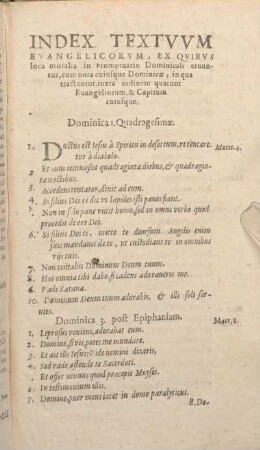 INDEX TEXTVVM
EVANGELICORVM, EX QVIBVS
loca moralia in Promptuario Dominicali eruun-
tur, cum nota cuiusque Dominicæ, in qua
tractantur, iuxta ordinem quatuor
Euangeliorum, & Capitum
cuiusque.
Dominica 1. Quadragesimæ.
1. Ductus est Iesus à Spiritu in desertum, vt tentare- Matt. 4.
tur à diabolo.
2. Et cum ieiunasset quadraginta diebus, & quadragin-
ta noctibus.
3. Accedens tentator, dixit ad eum.
4. Si filius Dei es dic vt lapides isti panes fiant.
5. Non in solo pane viuit homo, sed in omni verbo quod
procedit de ore Dei.
6. Si filius Dei es, mitte te deorsum. Angelis enim
suis mandauit de te, vt custodiant te in omnibus
vijs tuis.
7. Non tentabis Dominum Deum tuum.
8. Hæc omnia tibi dabo, si cadens adoraueris me.
9. Vade Satana.
10. Dominum Deum tuum adorabis, & illi soli ser-
uies.
Dominica 3. post Epiphaniam.
1. Leprosus veniens, adorabat eum. Matt. 8.
2. Domine, si vis, potes me mundare.
3. Et ait illi Iesus: Vide nemini dixeris,
4. Sed vade, ostende te Sacerdoti.
5. Et offer munus quod præcepit Moyses.
6. In testimonium illis.
7. Domine, puer meus iacet in domo paralyticus.
8. Do-